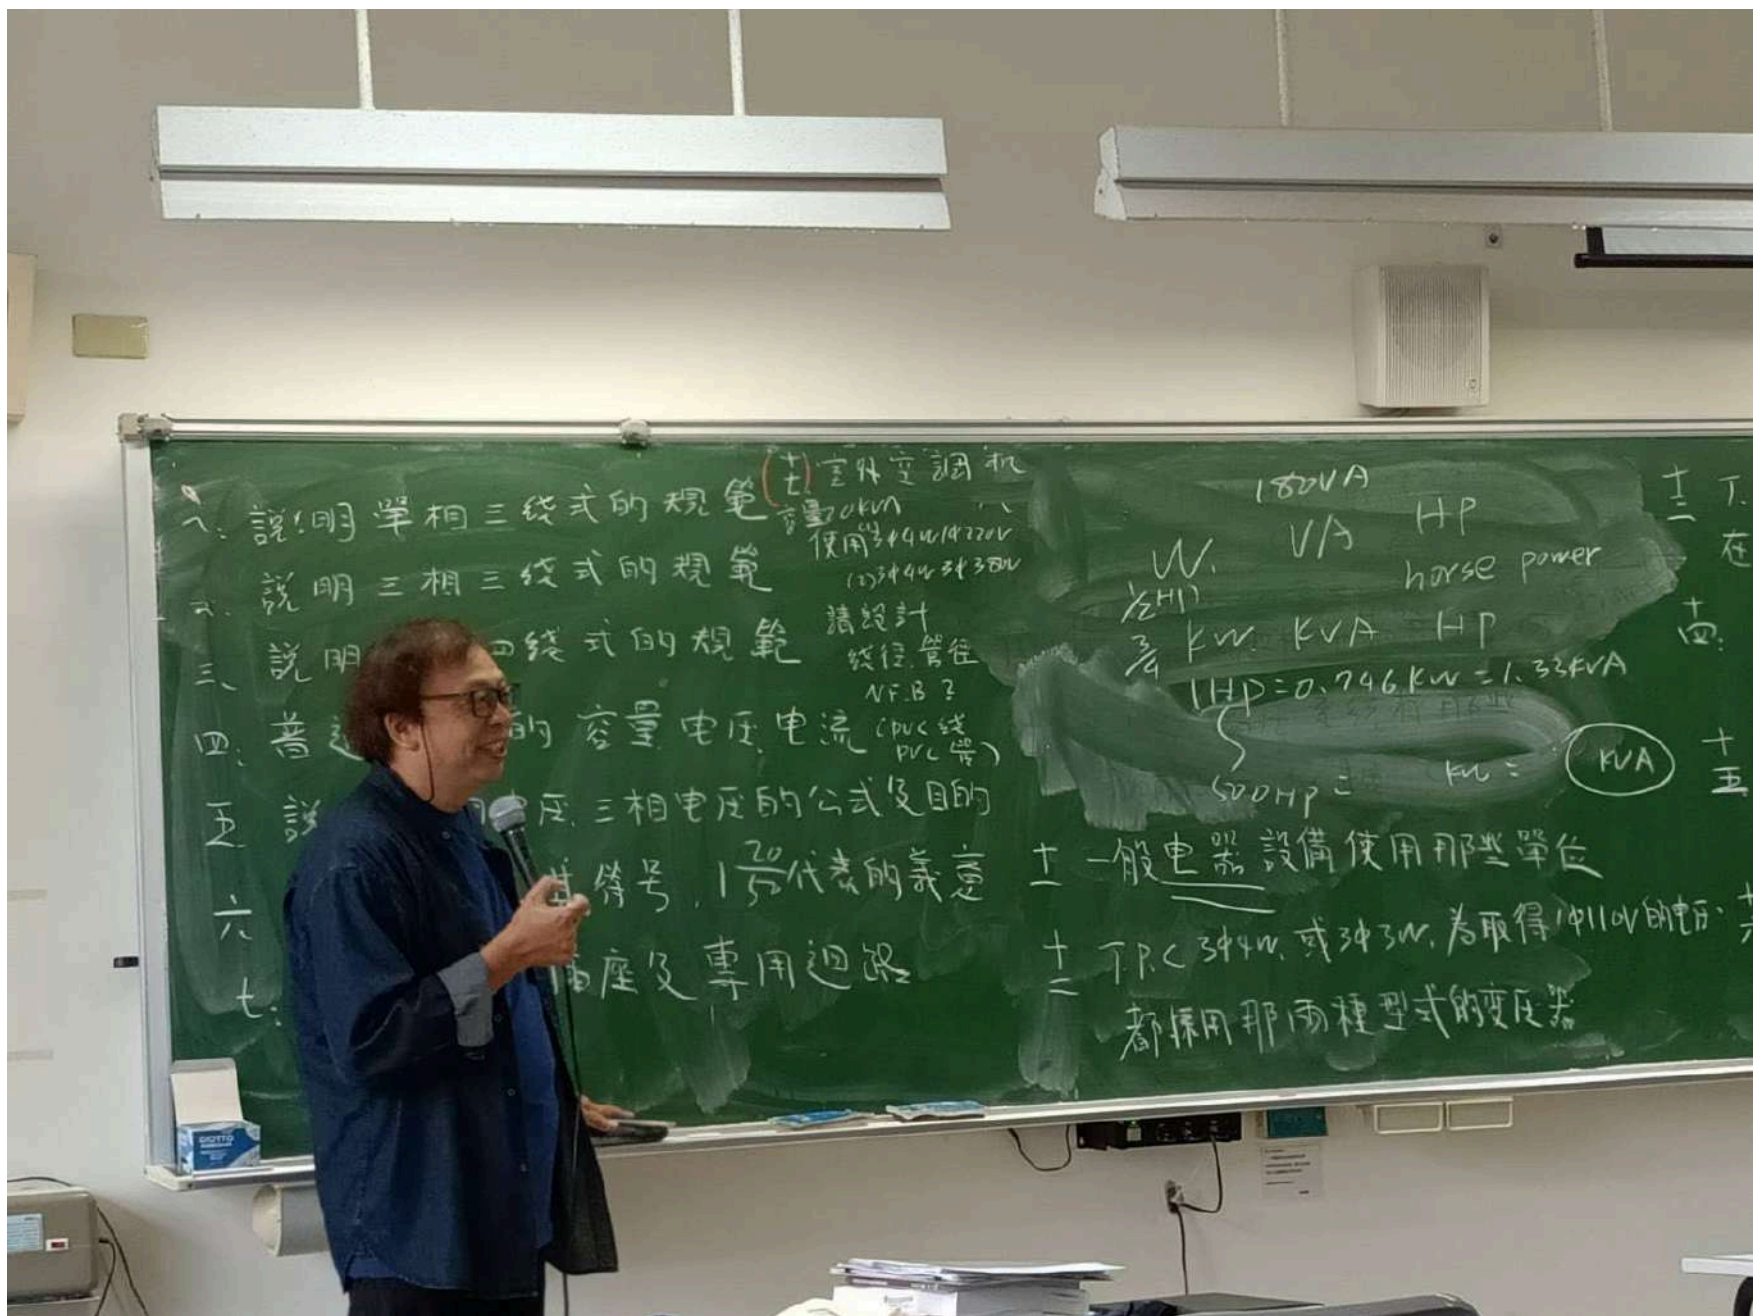 說明單相三綫式的規範
說明三相三綫式的規範
三、說明 四綫式的規範
四、普 的容量.电压.电流
五 說 电压.三相电压的公式及目的
六 符号.1 20/50代表的義意
七: 插座及專用迴路
(十七)室外空調机
容量20KVA
使用(1)3φ4W1φ220V
(2)3φ4W3φ380V
請設計
綫徑.管徑
N.F.B?
(PVC綫
PVC管)
180VA
W. VA HP
horse power
1/2HP
3/4 KW. KVA HP
1HP=0.746KW=1.33KVA
500HP= KW= KVA
十一 一般电器設備使用那些單位
十二 T.P.C 3φ4W.或3φ3W.為取得1φ110V的电压.
都採用那兩種型式的变压器
十三 T.
在
十四:
十五
十六
GIOTTO